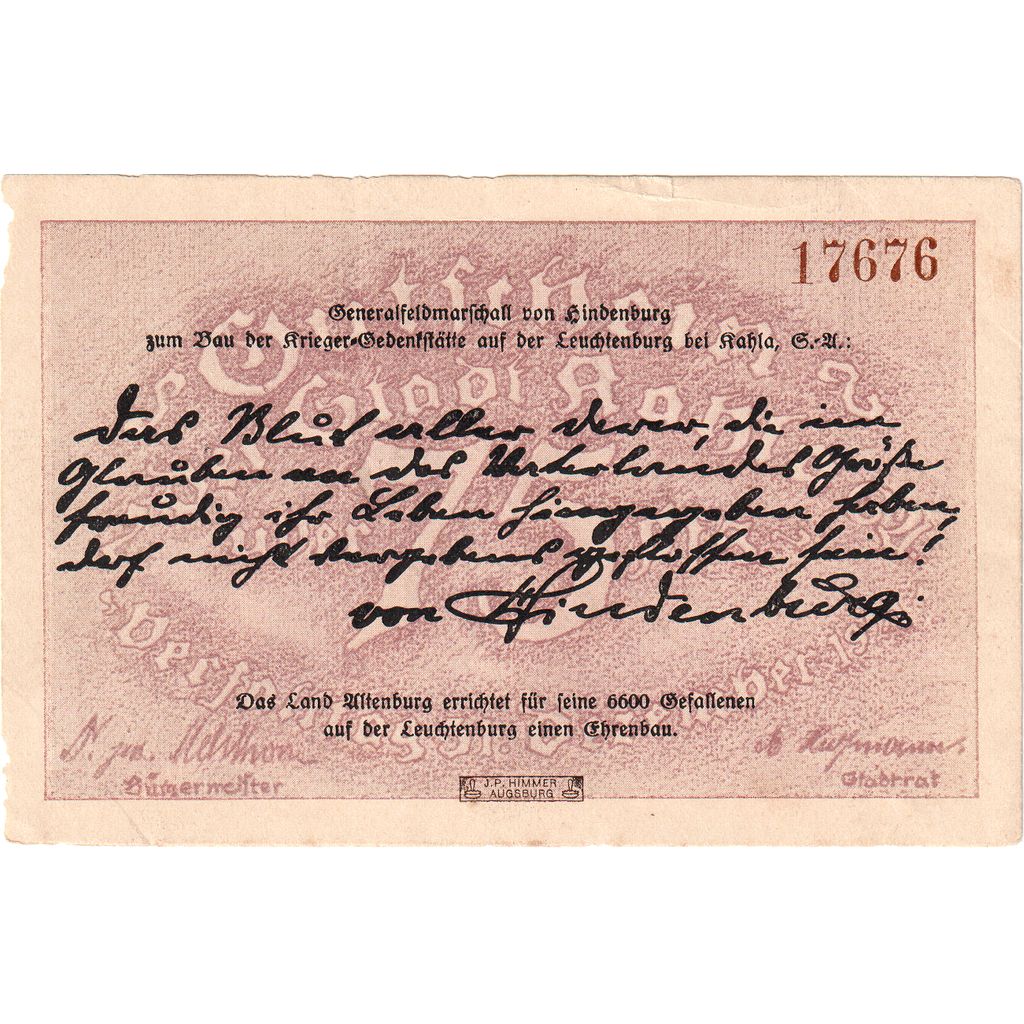 17676
Generalfeldmarschall von Hindenburg
zum Bau der Krieger-Gedenkstätte auf der Leuchtenburg bei Kahla, S.-A.:
Das Blut aller derer, die im
Glauben an des Vaterlandes Größe
freudig ihr Leben hingegeben haben,
darf nicht vergebens geflossen sein!
von Hindenburg.
Das Land Altenburg errichtet für seine 6600 Gefallenen
auf der Leuchtenburg einen Ehrenbau.
Bürgermeister
Stadtrat
J.P. HIMMER
AUGSBURG
Gutschein
Stadt Kahla
75